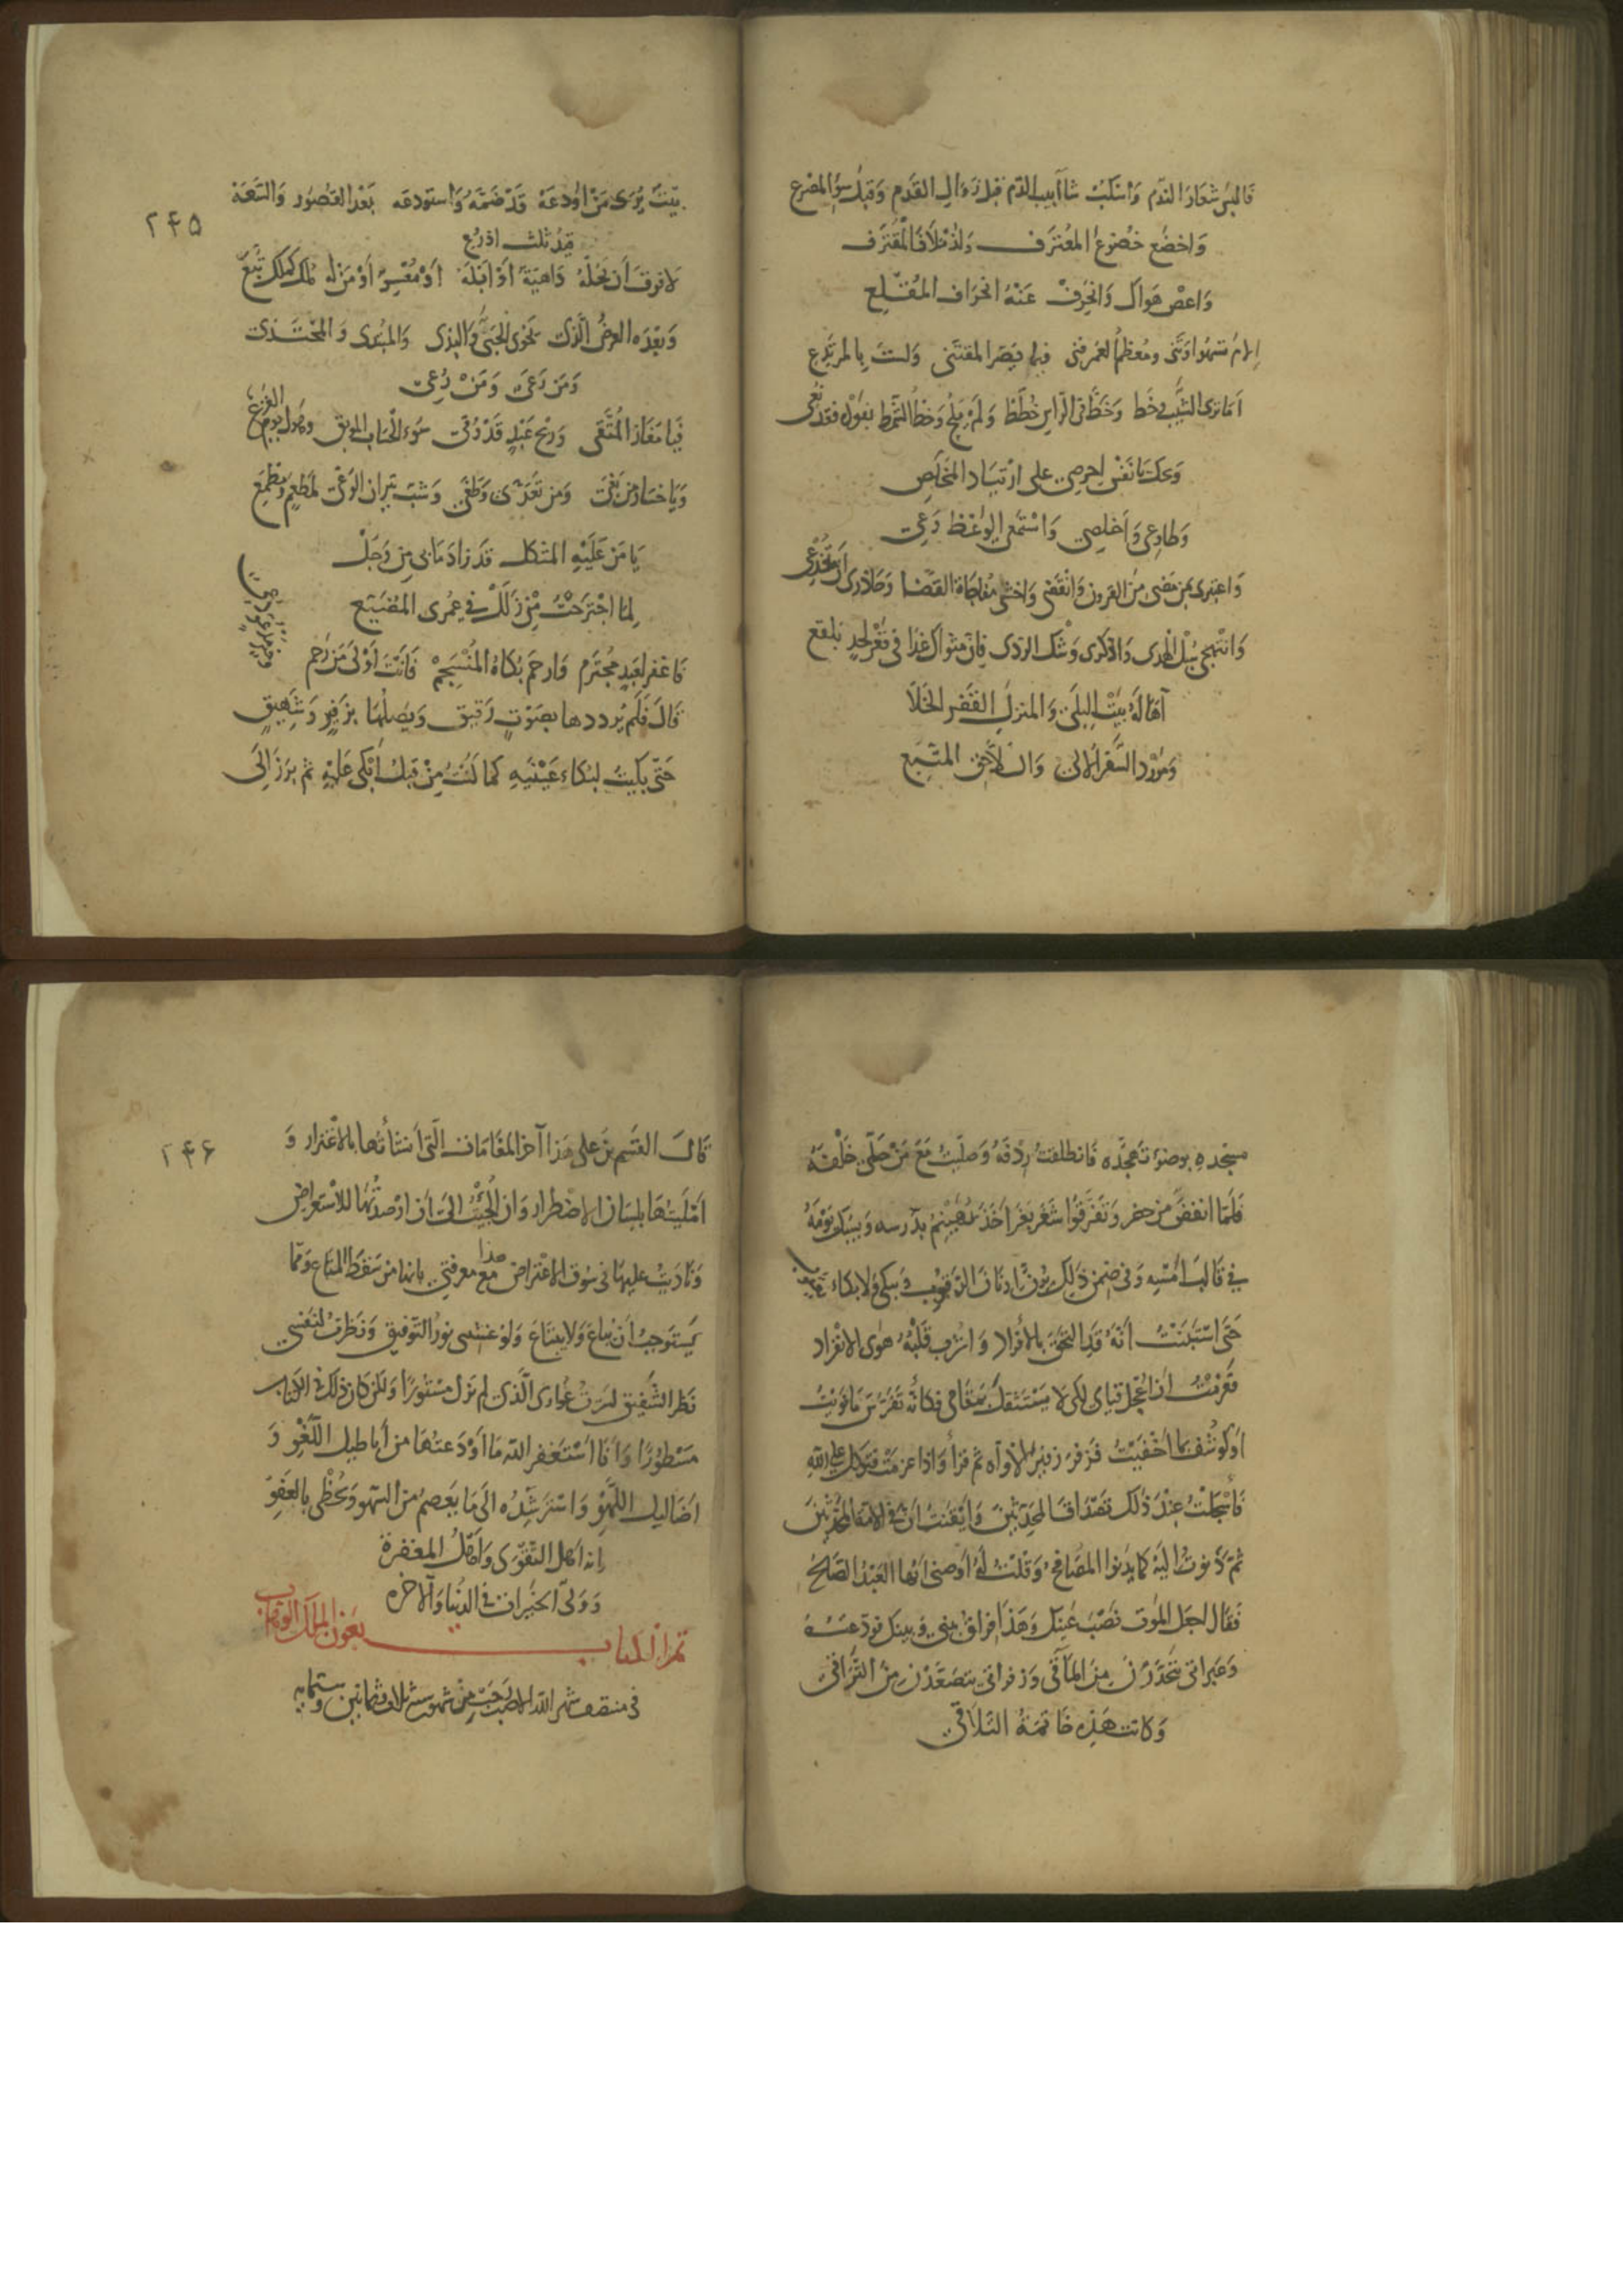 فالبس شعار الندم واسكب شآبيب الدم قبل زوال القدم وقبل سوء المصرع
واخضع خضوع المعترف ولذ ملاذ المقترف
واعص هواك وانحرف عنه انحراف المقلع
إلام تسهو وتني ومعظم العمر فني فيما يضر المقتني ولست بالمرتدع
أما ترى الشيب وخط وخط في الراس خطط ولم يلح وخط الشمط بفوده فقد نعي
ويحك يا نفس احرصي على ارتياد المخلص
وطاوعي واخلصي واستمعي الوعظ وعي
واعتبري بمن مضى من القرون وانقضى واخشي مفاجاة القضا وحاذري أن تخدعي
وانتهجي سبل الهدى واذكري وشك الردى فإن مثواك غدا في قعر لحد بلقع
آها له بيت البلى والمنزل القفر الخلا
ومورد السفر الالى واللاحق المتبع
بيت يرى من اودعه قد ضمه واستودعه بعد القصور والسعة
قيد ثلث اذرع
۲۴۵
لا فرق أن يحله داهية أو ابله أو معسر أو من له ملك كملك تبع
وبعده العرض الذي يحوي الحيي والبذي والمبتدي والمحتذي
ومن رعى ومن رعي
فيا مفاز المتقي وربح عبد قد وقي سوء الحساب الموبق وهول يوم الفزع
ويا خسار من بغى ومن تعدى وطغى وشب نيران الوغى لمطعم ومطمع
يا من عليه المتكل قد زاد ما بي من وجل
لما اجترحت من زلل في عمري المضيع
فاغفر لعبد مجترم وارحم بكاه المنسجم فانت أولى من رحم
وخير مدعو دعي
قال فلم يرددها بصوت رقيق ويصلها بزفير وشهيق
حتى بكيت لبكاء عينيه كما كنت من قبل أبكي عليه ثم برز إلى
مسجده بوضوء تهجده فانطلقت ردفه وصليت مع من صلى خلفه
فلما انفض من حضر وتفرقوا شغر بغر اخذ يهينم بدرسه ويسبك يومه
في قالب أمسه وفي ضمن ذلك يرن إرنان الرقوب ويبكي ولا بكاء يعقوب
حتى استبنت أنه قد التحق بالأفراد وأشرب قلبه هوى الانفراد
فعزمت ان اعجل لكي لا يستثقل مقامي فكانه تفرس ما نويت
أو كوشف بما اخفيت فزفر زفير الأواه ثم قرأ واذا عزمت فتوكل على الله
فأسجلت عند ذلك بصدق المحدثين وايقنت ان في الامة المحدثين
ثم دنوت اليه كما يدنو المصافح وقلت له أوصني ايها العبد الصالح
فقال اجعل الموت نصب عينك وهذا فراق بيني وبينك فودعته
وعبراتي يتحدرن من المآقي وزفراتي يتصعدن من التراقي
وكانت هذه خاتمة التلاقي
قال القسم بن علي هذا آخر المقامات التي أنشأتها بالاغترار و
۲۴۶
امليتها بلسان الاضطرار وان ألجئت إلى أن ارصدتها للاستعراض
وناديت عليها في سوق الاعتراض هذا مع معرفتي بانها من سقط المتاع ومما
يستوجب أن يباع ولا يبتاع ولو غشيني نور التوفيق ونظرت لنفسي
نظر الشفيق لسترت عواري الذي لم يزل مستورا ولكن كان ذلك في الكتاب
مسطورا وأنا استغفر الله مما اودعتها من أباطيل اللغو و
اضاليل اللهو واسترشده الى ما يعصم من السهو ويحظي بالعفو
إنه اهل التقوى واهل المغفرة
وولي الخيرات في الدنيا والآخره
تم الكتاب بعون الملك الوهاب
في منتصف شهر الله الاصب رجب من شهور سنة ثلاث وثمانين وستمايه